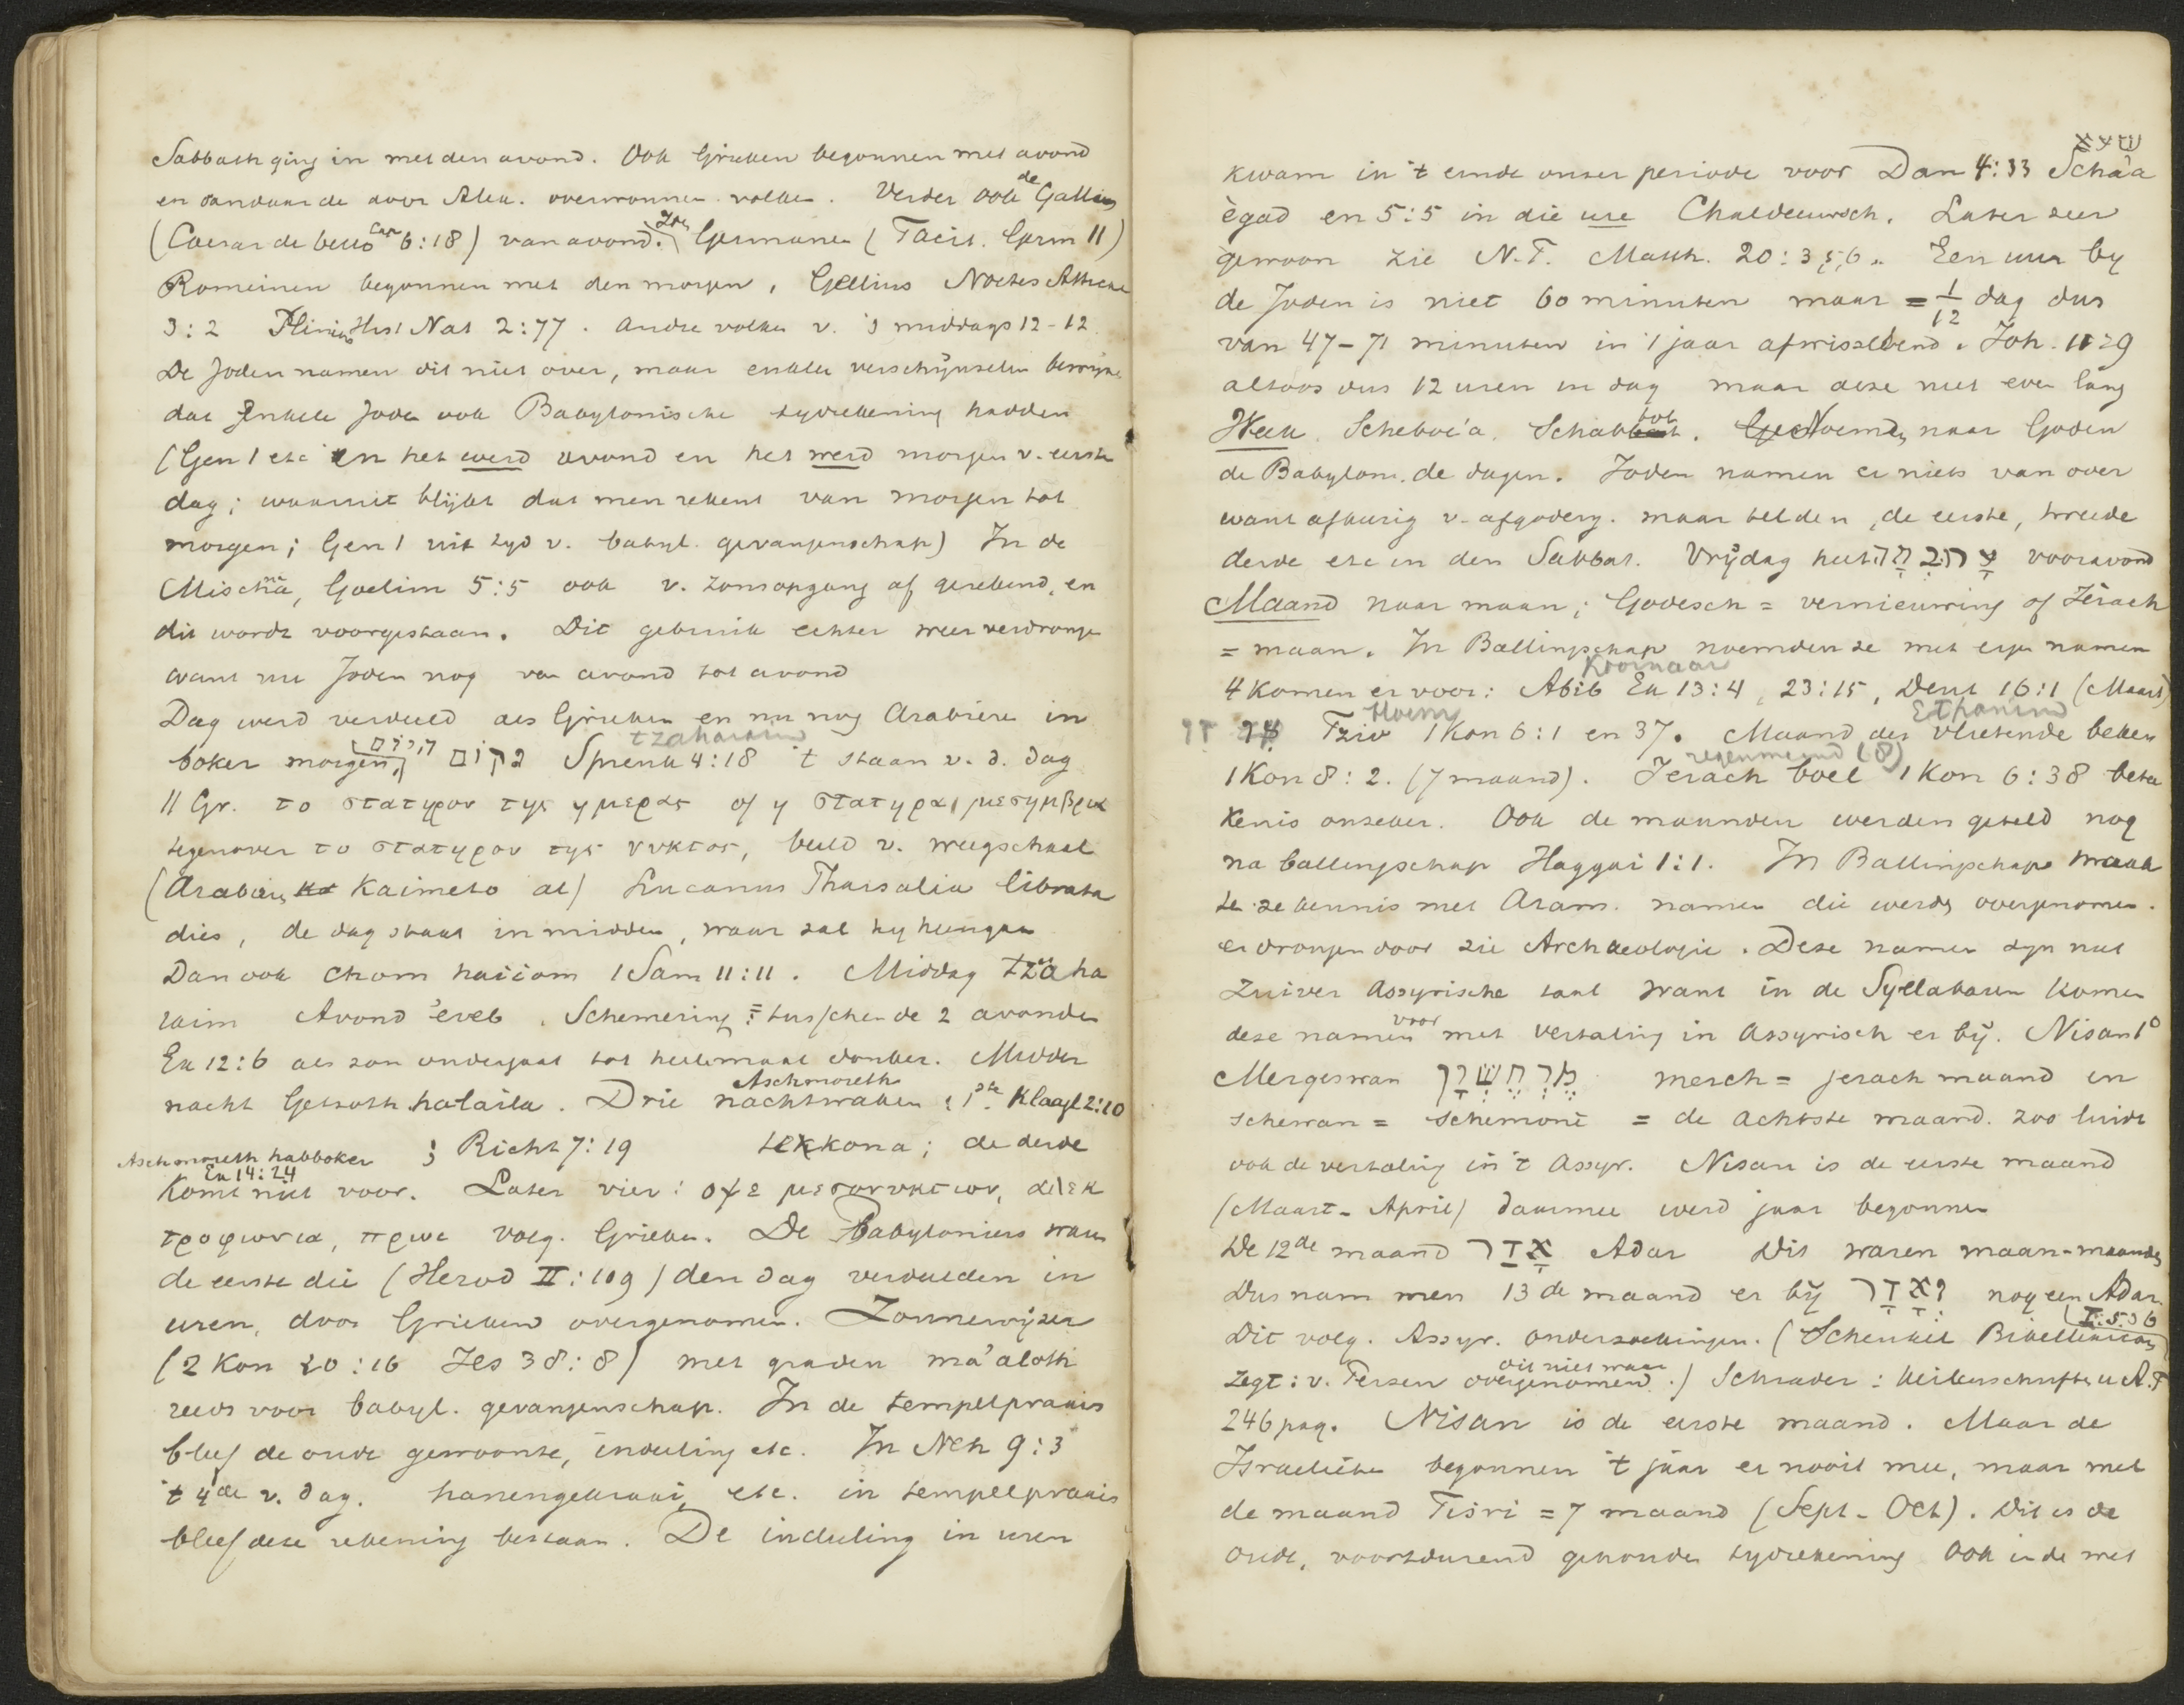 Sabbath ging in met den avond. Ook Grieken begonnen met avond
en vandaar de door Alex. overwonnen volken. Verder ook de Galliers
(Caesar de bello 6:18) van avond. Zoo Germanen (Tacit. Germ 11)
Romeinen begonnen met den morgen, Gellius Noctes Atticae
3:2 Plinius Hist Nat 2:77. Andre volken v. 's middags 12-12.
De Joden namen dit niet over, maar enkele verschijnselen bewijzen
dat Enkele Joden ook Babylonische tydrekening hadden
(Gen 1 etc en het werd avond en het werd morgen v. eerste
dag; waaruit blijkt dat men rekent van morgen tot
morgen; Gen 1 uit tyd v. babyl. gevangenschap) In de
Mischna, Goelim 5:5 ook v. zonsopgang af gerekend, en
dit wordt voorgestaan. Dit gebruik echter weer verdrongen
want nu Joden nog van avond tot avond
Dag werd verdeeld als Grieken en nu nog Arabieren in
tzaharaim
boker morgen, היום Spreuk 4:18 't staan v. d. dag
11 Gr. το σταтηρον της ημερας of η σтατηρα μεσημβρια
tegenover το στατηρον της νυκτος, beeld v. weegschaal
(Arabiers Kaimeto al) Lucanus Pharsalia librata
dies, de dag staat in midden, waar zal hy hengen
Dan ook chom haiiom 1 Sam 11:11. Middag tzaha
raim Avond 'ereb. Schemering = tusschen de 2 avonden
Ex 12:6 als zon ondergaat tot heelemaal donker. Midder
nacht Getsoth halaila. Drie Aschmoreth nachtwaken: 1ste Klaagl 2:10
Aschmoreth habboker Ex 14:24; Richt 7:19 tekkona; de derde
komt niet voor. Later vier: οψε μεσονυκτιον, αλεκ
τροφωνια, πρωι volg. Grieken. De Babyloniers waren
de eerste die (Herod II:109) den dag verdeelden in
uren, door Grieken overgenomen. Zonnewijzer
(2 Kon 20:16 Jes 38:8) met graden ma'aloth
reeds voor babyl. gevangenschap. In de tempelpraxis
bleef de oude gewoonte, indeeling etc. In Neh 9:3
't 4de v. dag. hanengekraai, etc. in tempelpraxis
bleef deze rekening bestaan. De indeeling in uren
שעא
kwam in 't einde onzer periode voor Dan 4:33 Schaa
egad en 5:5 in die ure Chaldeeuwsch. Later zeer
gewoon zie N.T. Matth. 20:3,5,6. Een uur by
de Joden is niet 60 minuten maar = 1/12 dag dus
van 47-71 minuten in 1 jaar afwisselend. Joh. 11:9
altoos dus 12 uren in dag maar deze niet even lang
Week. Scheboe'a. Schabbat. Noemden naar Goden
de Babylon. de dagen. Joden namen er niets van over
want afkeerig v. afgodery. maar telden, de eerste, tweede
derde etc en den Sabbat. Vrijdag heet vooravond
Maand naar maan; Godesch = vernieuwing of Jerach
= maan. In Ballingschap noemden ze met eigen namen
Koornaar
4 komen er voor: Abib Ex 13:4, 23:15, Deut 16:1 (Maart)
Tziv 1 Kon 6:1 en 37. Maand der vlietende beken
regenmaand (8)
1 Kon 8:2. (7 maand). Jerach boel 1 Kon 6:38 betee
kenis onzeker. Ook de maanden werden geteld nog
na ballingschap Haggai 1:1. In Ballingschap maak
te ze kennis met Aram. namen die werden overgenomen.
er drongen door zie Archaeologie. Deze namen zyn niet
zuiver Assyrische taal want in de Syllabaren komen
deze namen voor met vertaling in Assyrisch er bij. Nisan 1°
Mergeswan מרחשון merch = jerach maand en
schewan = schemone = de achtste maand. zoo luidt
ook de vertaling in 't Assyr. Nisan is de eerste maand
(Maart-April) daarmee werd jaar begonnen
De 12de maand אדר Adar Dit waren maan-maanden
Dus nam men 13de maand er bij ואדר nog een Adar.
Dit volg. Assyr. onderzoekingen. (Schenkel Bibellexicon I:536
zegt: v. Perzen overgenomen dit niet waar.) Schrader: Keilenschriften u A.T
246 pag. Nisan is de eerste maand. Maar de
Israelieten begonnen 't jaar er nooit mee, maar met
de maand Tisri = 7 maand (Sept-Oct). Dit is de
oude, voortdurend gehouden tydrekening Ook in de wet